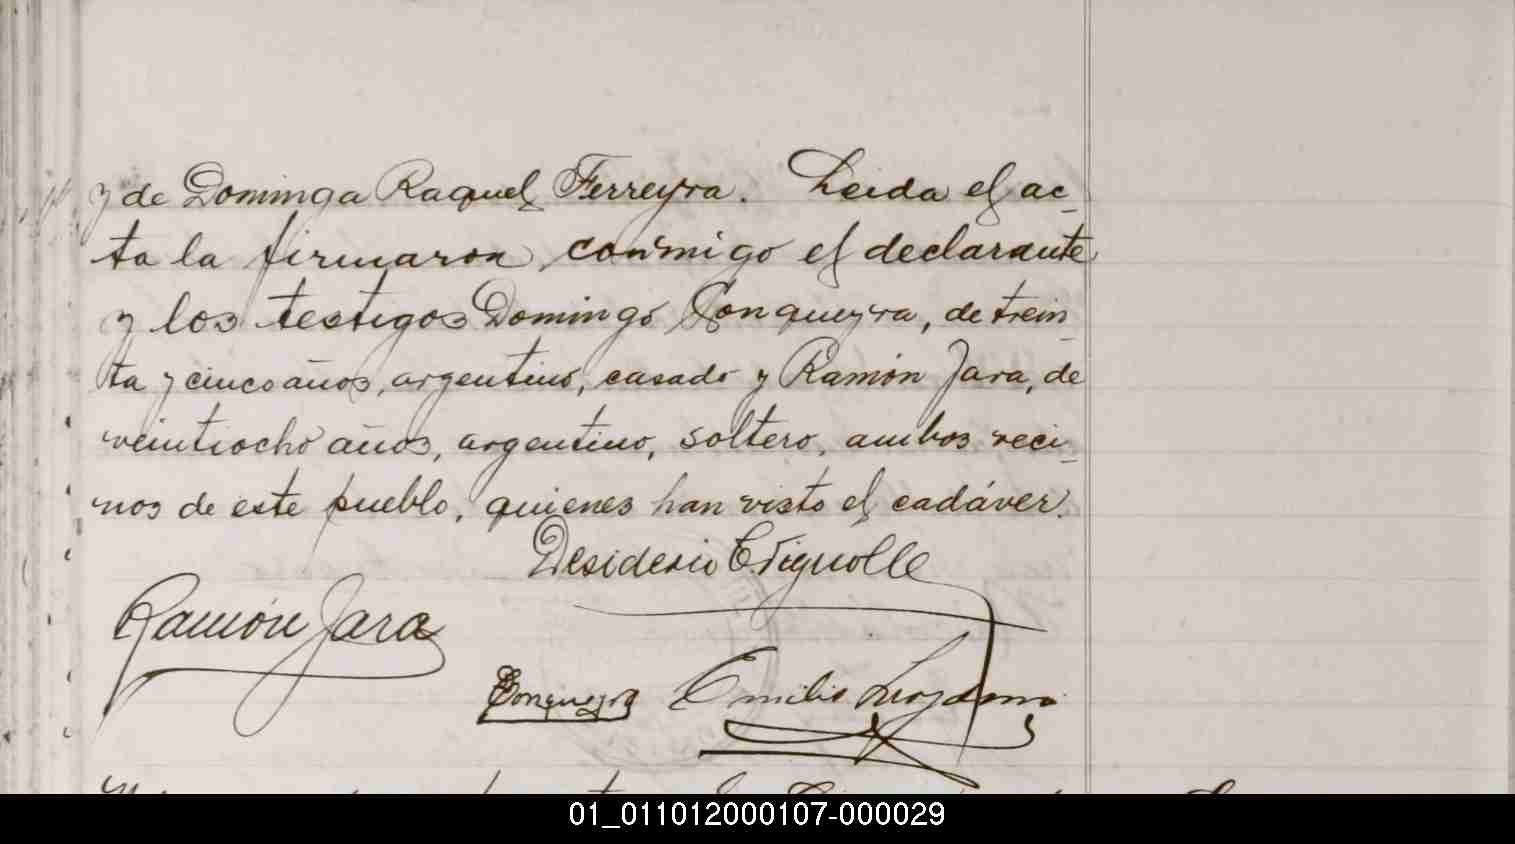 y de Dominga Raquel Ferreyra. Leida el ac-
ta la firmaron conmigo el declarante
y los testigos Domingo Conqueyra, de trein-
ta y cinco años, argentino, casado y Ramón Jara, de
veintiocho años, argentino, soltero, ambos veci-
nos de este pueblo, quienes han visto el cadáver.
Desiderio
Ramón Jara
Conqueyra Emilio
01_011012000107-000029